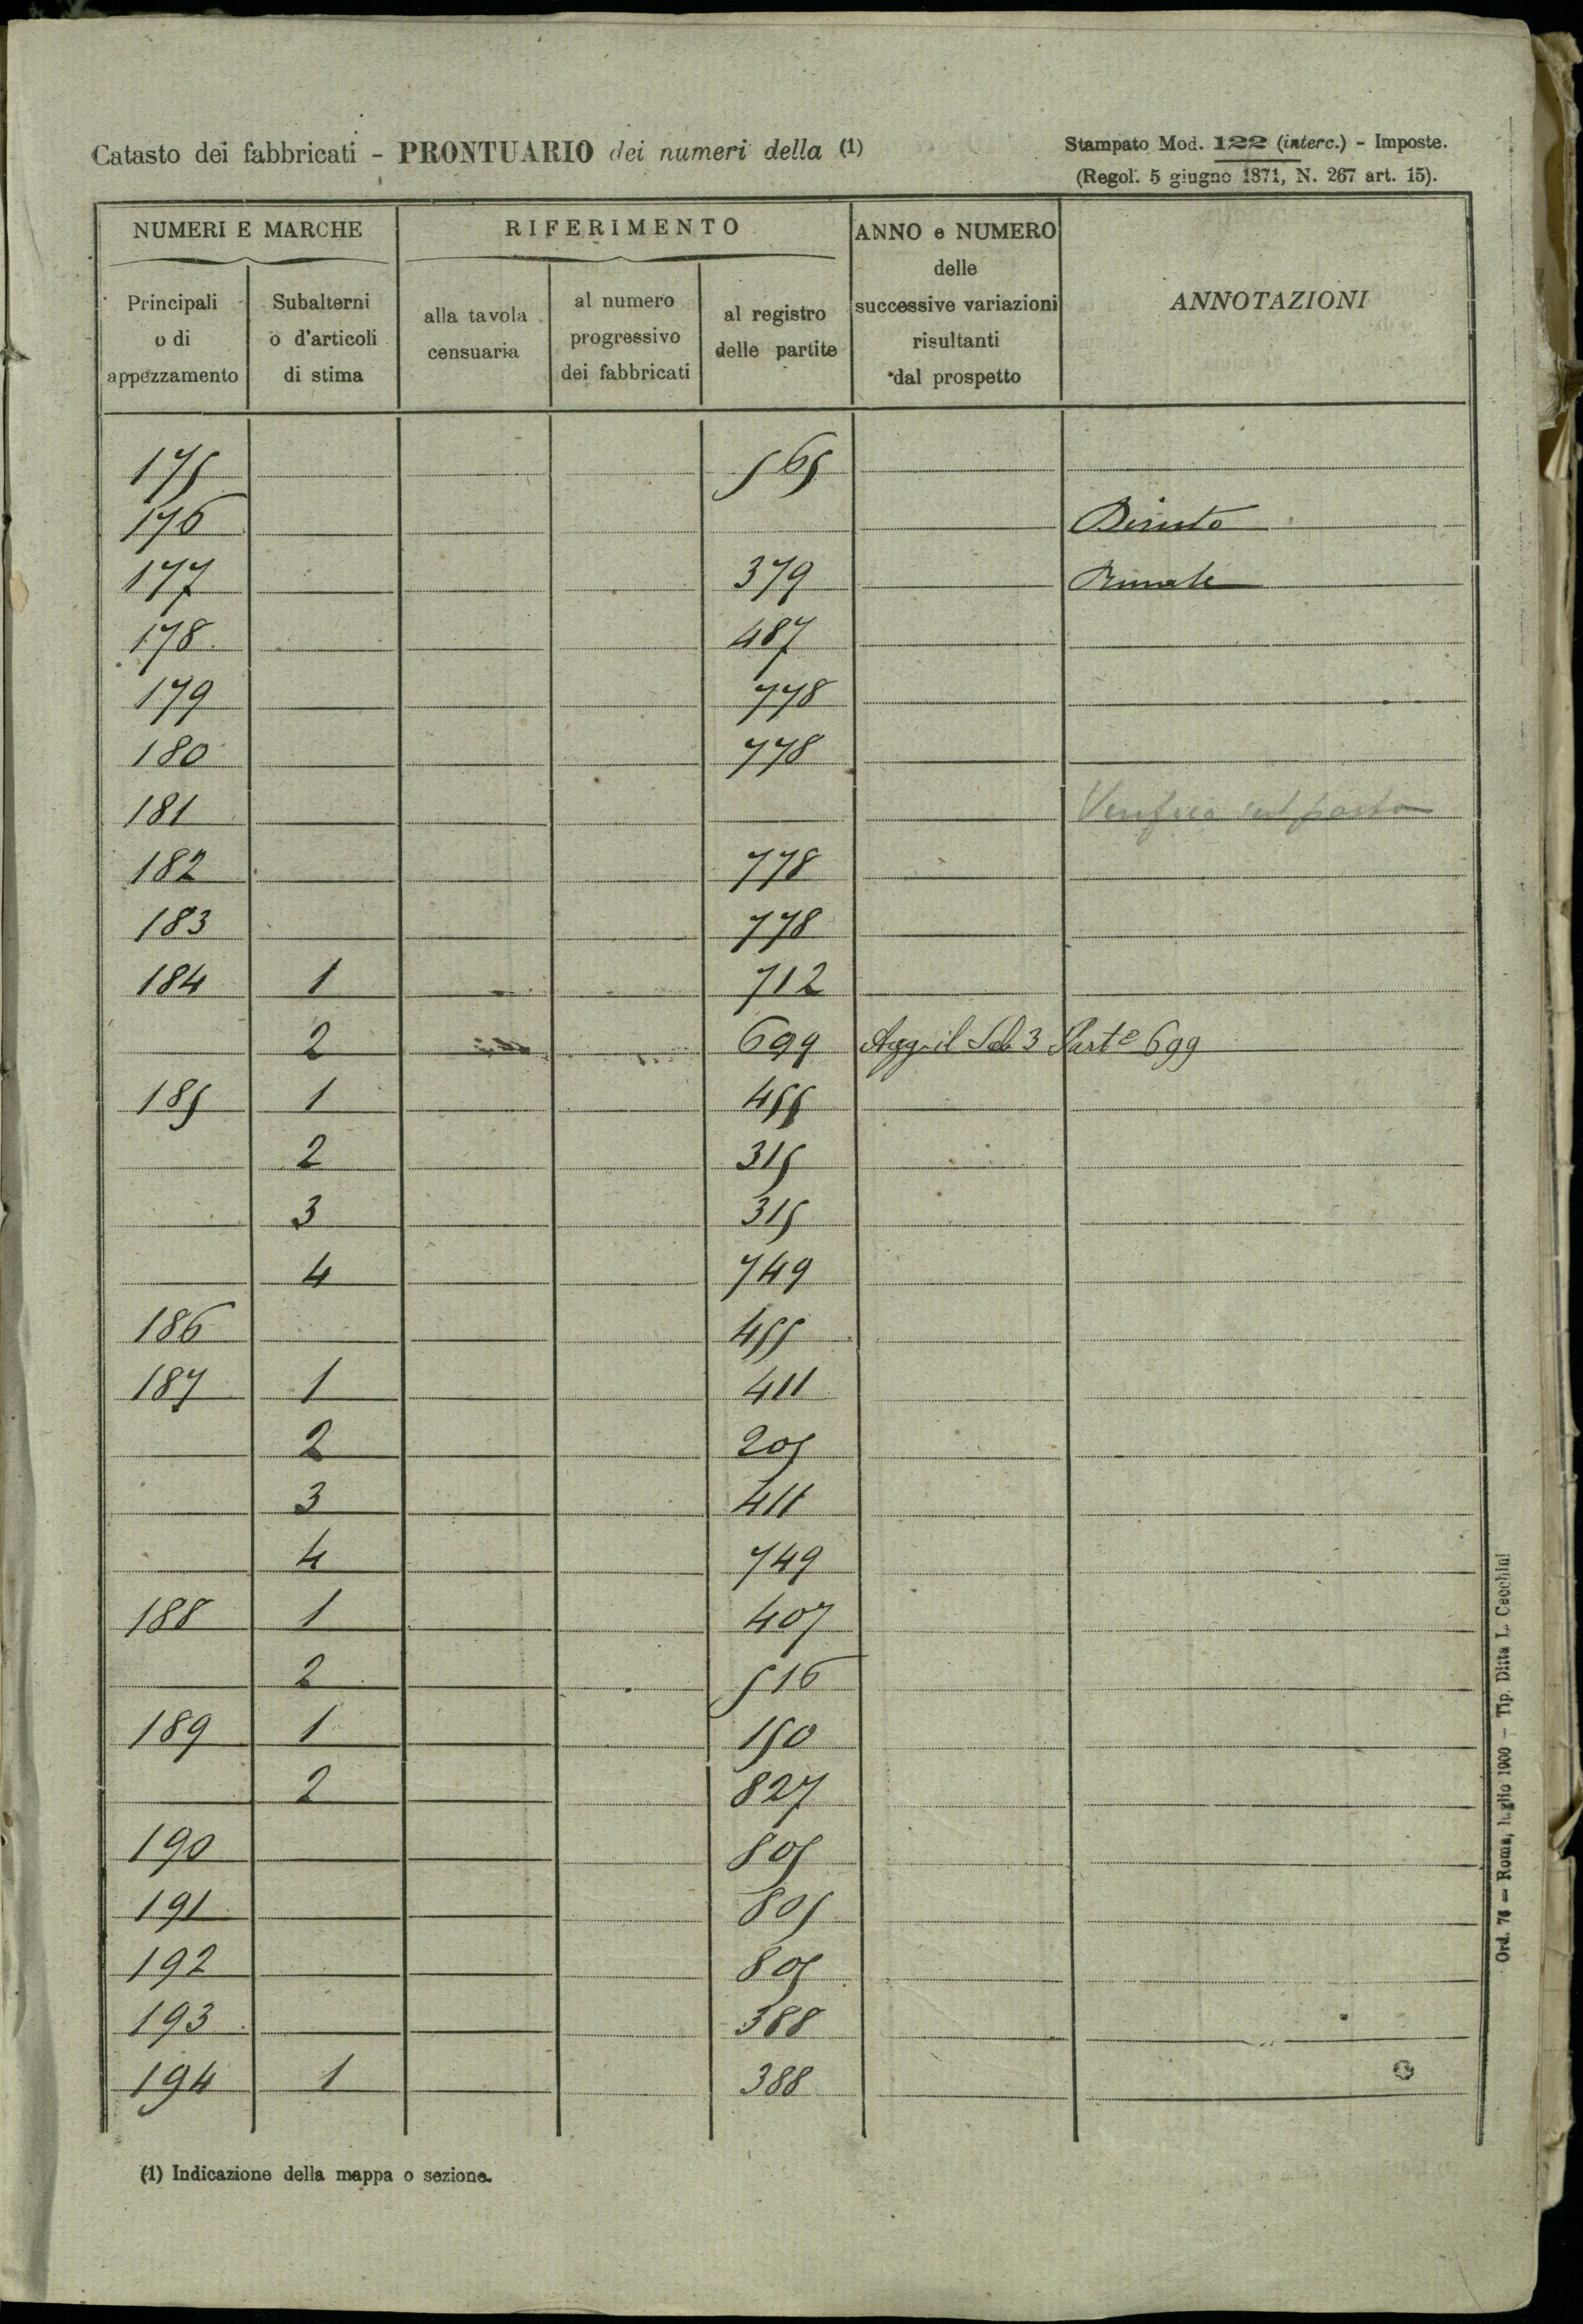 Catasto dei fabbricati - PRONTUARIO dei numeri della (1)
Stampato Mod. 122 (interc.) - Imposte.
(Regol. 5 giugno 1871, N. 267 art. 15).
NUMERI E MARCHE
RIFERIMENTO
ANNO e NUMERO
delle
successive variazioni
risultanti
dal prospetto
ANNOTAZIONI
Principali
o di
appezzamento
Subalterni
o d'articoli
di stima
alla tavola
censuaria
al numero
progressivo
dei fabbricati
al registro
delle partite
175 565
176 Diruto
177 379 Rurale
178 487
179 778
180 778
181 Verifica sul posto
182 778
183 778
184 1 712
2 699 Agg. il Sub 3 Part e 699
185 1 455
2 315
3 315
4 749
186 455
187 1 411
2 205
3 411
4 749
188 1 407
2 516
189 1 150
2 827
190 805
191 805
192 805
193 388
194 1 388
(1) Indicazione della mappa o sezione.
Ord. 76 — Roma, luglio 1900 — Tip. Ditta L. Cecchini